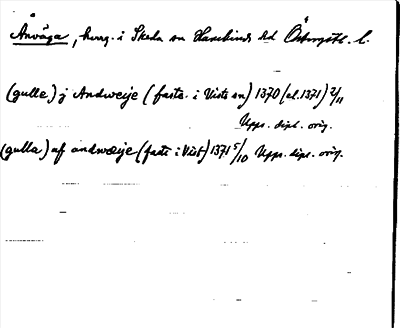 Ånväga, hmg. i Skeda sn Hanekinds hd Östergötl. l.
(gulle) j Andweije (faste i Vists sn) 1370 (el. 1371) 2/11
Upps. dipl. orig.
(gulla) af andwæije (faste i Vist) 1371 5/10 Upps. dipl. orig.